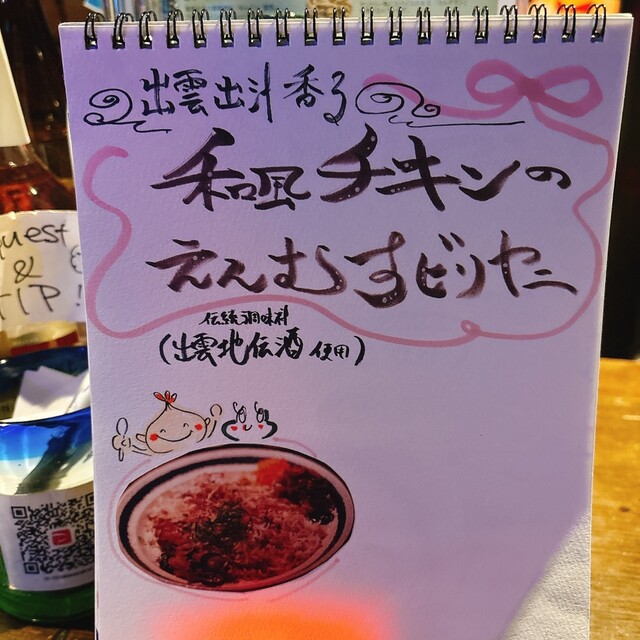 出雲出汁香る
和風チキンの
えんむすビリヤニ
伝統調味料
(出雲地伝酒 使用)
uest
&
TIP!